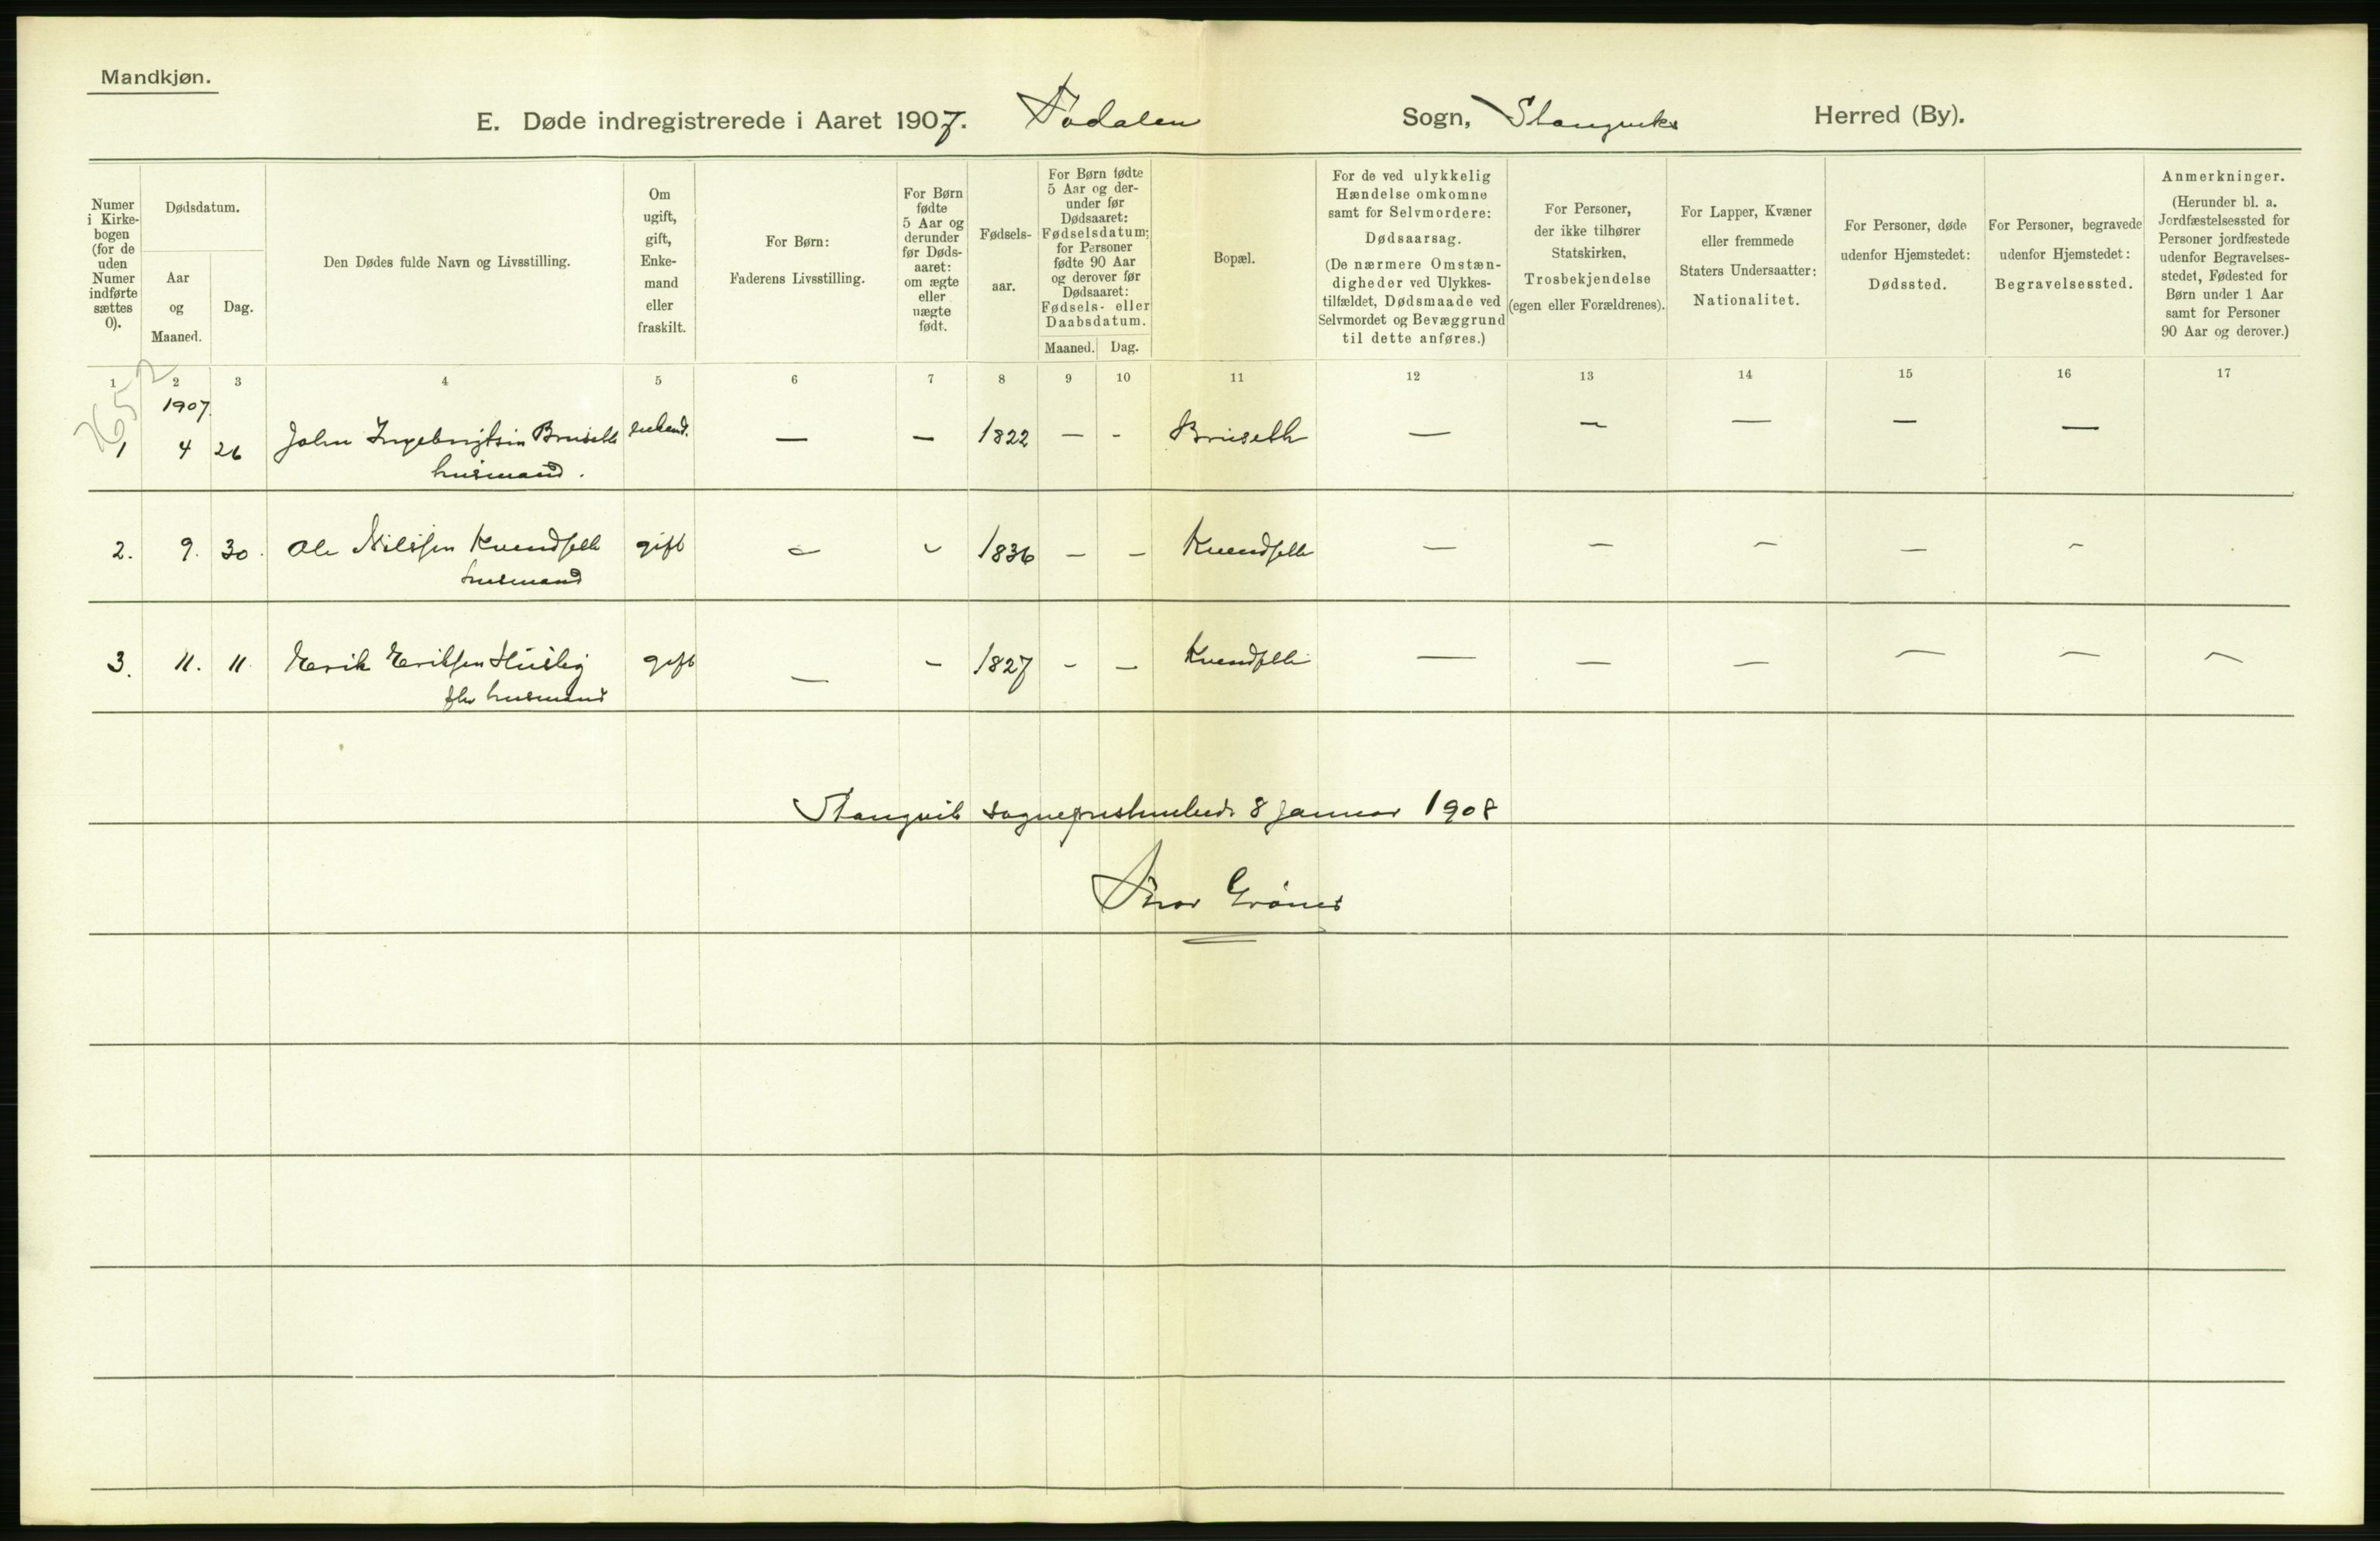 Mandkjøn.
E. Døde indregistrerede i Aaret 1907. Todalen Sogn, Stangviks Herred (By).
Numer i Kirke-bogen (for de uden Numer indførte sættes 0).
Dødsdatum.
Aar og Maaned.
Dag.
Den Dødes fulde Navn og Livsstilling.
Om ugift, gift, Enke-mand eller fraskilt.
For Børn: Faderens Livsstilling.
For Børn fødte 5 Aar og derunder før Døds-aaret: om ægte eller uægte født.
Fødsels-aar.
For Børn fødte 5 Aar og der-under før Dødsaaret: Fødselsdatum; for Personer fødte 90 Aar og derover før Dødsaaret: Fødsels- eller Daabsdatum.
Maaned. Dag.
Bopæl.
For de ved ulykkelig Hændelse omkomne samt for Selvmordere: Dødsaarsag. (De nærmere Omstæn-digheder ved Ulykkes-tilfældet, Dødsmaade ved Selvmordet og Bevæggrund til dette anføres.)
For Personer, der ikke tilhører Statskirken, Trosbekjendelse (egen eller Forældrenes).
For Lapper, Kvæner eller fremmede Staters Undersaatter: Nationalitet.
For Personer, døde udenfor Hjemstedet: Dødssted.
For Personer, begravede udenfor Hjemstedet: Begravelsessted.
Anmerkninger. (Herunder bl. a. Jordfæstelsessted for Personer jordfæstede udenfor Begravelses-stedet, Fødested for Børn under 1 Aar samt for Personer 90 Aar og derover.)
1 2 3 4 5 6 7 8 9 10 11 12 13 14 15 16 17
1907.
1 4 26 John Ingebrigtsen Bruseth — — 1822 — - Bruseth — — — — —
husmand.
2. 9. 30. Ole Nilssen Kvendseth gift — - 1836 — — Kvendseth — — — — —
husmand
3. 11. 11. Erik Eriksen gift — — 1827 - — Kvendseth — — — — — —
husmand
Stangvik 8 Januar 1908